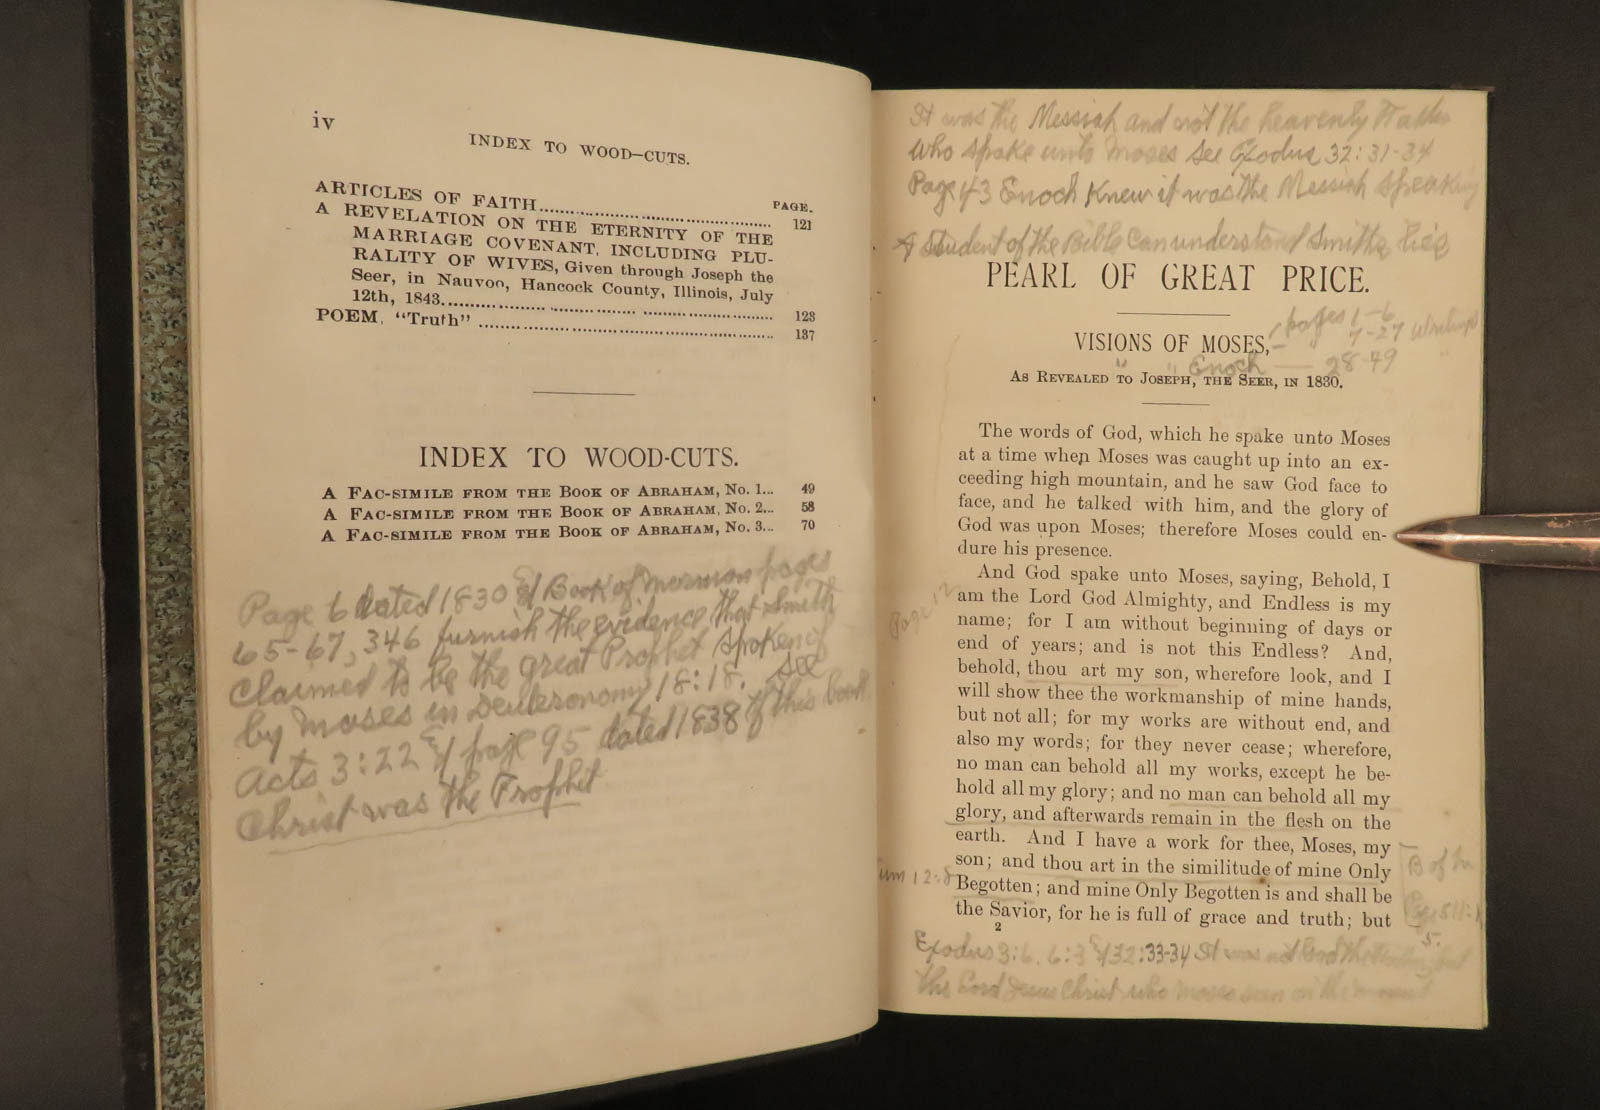 iv
INDEX TO WOOD-CUTS.
PAGE.
ARTICLES OF FAITH........................................ 121
A REVELATION ON THE ETERNITY OF THE
MARRIAGE COVENANT, INCLUDING PLU-
RALITY OF WIVES, Given through Joseph the
Seer, in Nauvoo, Hancock County, Illinois, July
12th, 1843.................................................. 123
POEM, "Truth" ............................................. 137
INDEX TO WOOD-CUTS.
A FAC-SIMILE FROM THE BOOK OF ABRAHAM, No. 1... 49
A FAC-SIMILE FROM THE BOOK OF ABRAHAM, No. 2... 58
A FAC-SIMILE FROM THE BOOK OF ABRAHAM, No. 3... 70
Page 6 dated 1830 & Book of Mormon pages
65-67, 346 furnish the evidence that Smith
claimed to be the great Prophet spoken of
by Moses in Deuteronomy 18:18. See
Acts 3:22 & page 95 dated 1838 of this book
Christ was the Prophet
It was the Messiah and not the heavenly Father
who spoke unto Moses see Exodus 32:31-34
Page 43 Enoch knew it was the Messiah speaking
A student of the Bible can understand Smiths lies
PEARL OF GREAT PRICE.
pages 1-6
VISIONS OF MOSES, 7-27 writings
" " Enoch — 28-49
AS REVEALED TO JOSEPH, THE SEER, IN 1830.
The words of God, which he spake unto Moses
at a time when Moses was caught up into an ex-
ceeding high mountain, and he saw God face to
face, and he talked with him, and the glory of
God was upon Moses; therefore Moses could en-
dure his presence.
And God spake unto Moses, saying, Behold, I
am the Lord God Almighty, and Endless is my
name; for I am without beginning of days or
end of years; and is not this Endless? And,
behold, thou art my son, wherefore look, and I
will show thee the workmanship of mine hands,
but not all; for my works are without end, and
also my words; for they never cease; wherefore,
no man can behold all my works, except he be-
hold all my glory; and no man can behold all my
glory, and afterwards remain in the flesh on the
earth. And I have a work for thee, Moses, my
son; and thou art in the similitude of mine Only
Begotten; and mine Only Begotten is and shall be
the Savior, for he is full of grace and truth; but
2
Page 12
12:8
B of
5.
Exodus 3:6. 6:3 & 32:33-34 It was not but
the Lord Jesus Christ who Moses seen on the mount